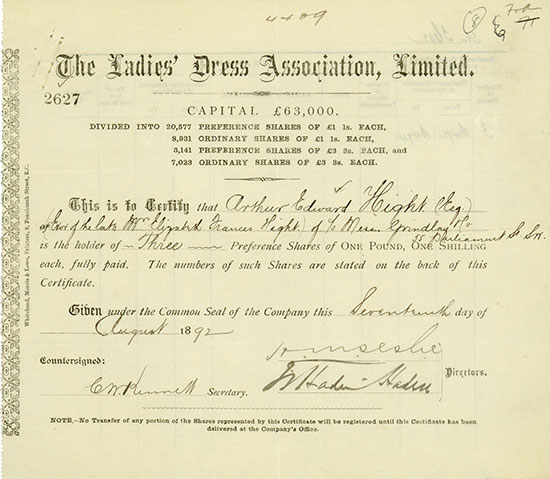 4409
(8)
The Ladies' Dress Association, Limited.
2627
CAPITAL £63,000.
DIVIDED INTO 20,577 PREFERENCE SHARES OF £1 1s. EACH,
8,931 ORDINARY SHARES OF £1 1s. EACH,
3,141 PREFERENCE SHARES OF £3 3s. EACH, and
7,023 ORDINARY SHARES OF £3 3s. EACH.
This is to Certify that Arthur Edward Hight (Esq)
of Exor of the late Mrs Elizabeth Frances Hight) of c/o Messrs Grindlay & Co
55 Parliament St SW.
is the holder of Three Preference Shares of ONE POUND, ONE SHILLING
each, fully paid. The numbers of such Shares are stated on the back of this
Certificate.
Given under the Common Seal of the Company this Seventeenth day of
August 1892
Countersigned:
Directors.
Secretary.
NOTE,—No Transfer of any portion of the Shares represented by this Certificate will be registered until this Certificate has been
delivered at the Company's Office.
Whitehead, Morris & Lowe, Printers, 9, Fenchurch Street, E.C.